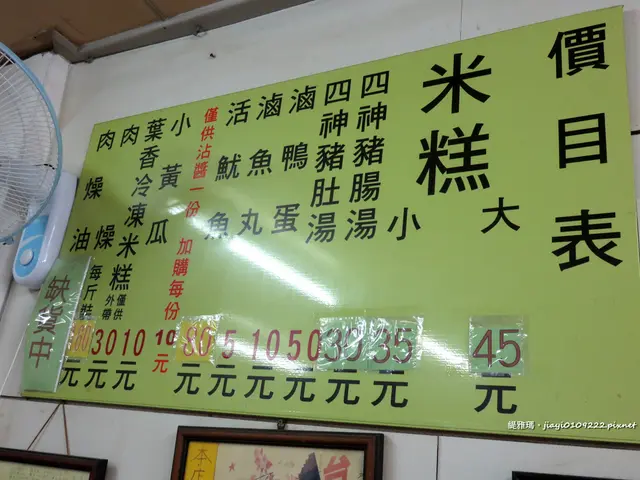 價目表
米糕 大 45元
小 35元
四神豬腸湯 30元
四神豬肚湯 50元
滷鴨蛋 10元
滷魚丸 5元
活魷魚 80元
僅供沾醬一份 加購每份 10元
小黃瓜 10元
葉香冷凍米糕 僅供外帶 30元
肉燥 每斤裝 180元
肉燥油
缺貨中
本店
緹雅瑪。jiayi0109222.pixnet